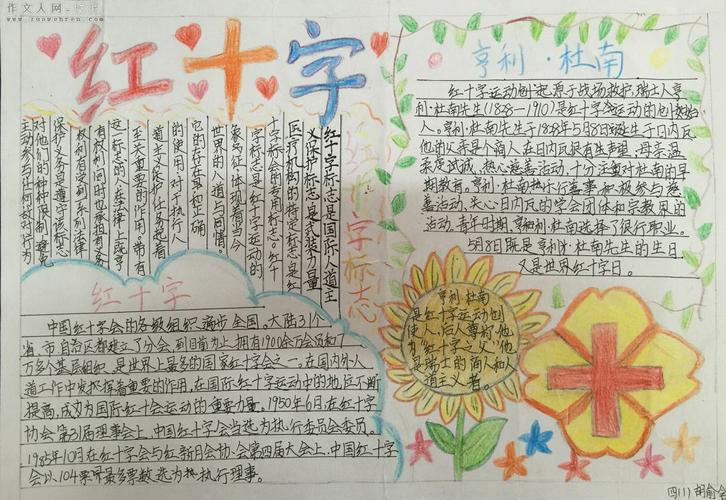 作文人网
www.zuowenren.com
红十字
亨利·杜南
红十字运动创起源于战场救护,瑞士人亨
利·杜南先生(1828—1910)是红十字会运动的创始
人。亨利·杜南先生于1828年5月8日诞生于日内瓦
他的父亲是个商人在日内瓦很有生声理,母亲温
柔虔诚,热心慈善活动,十分注重对杜南的
早期教育。亨利·杜南热心行善事积极参与慈
善活动,关心日内瓦的学会团体和宗教界的
活动,青年时期,亨利·杜南选择了银行职业。
5月8日既是亨利·杜南先生的生日,
又是世界红十字日。
红十字标志
红十字标志是国际人道主
义保护标志,是武装力量
医疗机构的特定标志,是红
十字会的专用标志。红十
字标志是红十字运动的
象征,体现着当今
世界的人道与同情。
它的存在及正确
的使用,对于执行人
道主义保护任务起着
至关重要的作用,带有
这一标志的人在法律上既享
有权利同时也承担有义务
权利是享有系列法律
保护,义务是遵守该标志
对他们的种种限制,避免
主动参与任何敌对行为
红十字
中国红十字会的各级组织遍步全国。大陆31个
省、市、自治区都建立了分会,到目前为止,拥有1900余万会员和7
万多个基层组织,是世界上最多的国家红十字会之一。在国内外人
道工作中发挥着重要的作用,在国际红十字运动中的地位不断
提高,成为国际红十字会运动的重要力量。1950年6月在红十字
协会第31届理事会上,中国红十字会当选为执行委员会委员。
1985年10月在红十字会与红新月会协会第四届大会上,中国红十字
会以104票最多票数选为执行理事。
亨利·杜南
是红十字运动创
使人,后人尊称他
为“红十字之父”他
是瑞士的商人和人
道主义者。
四(1)胡俞